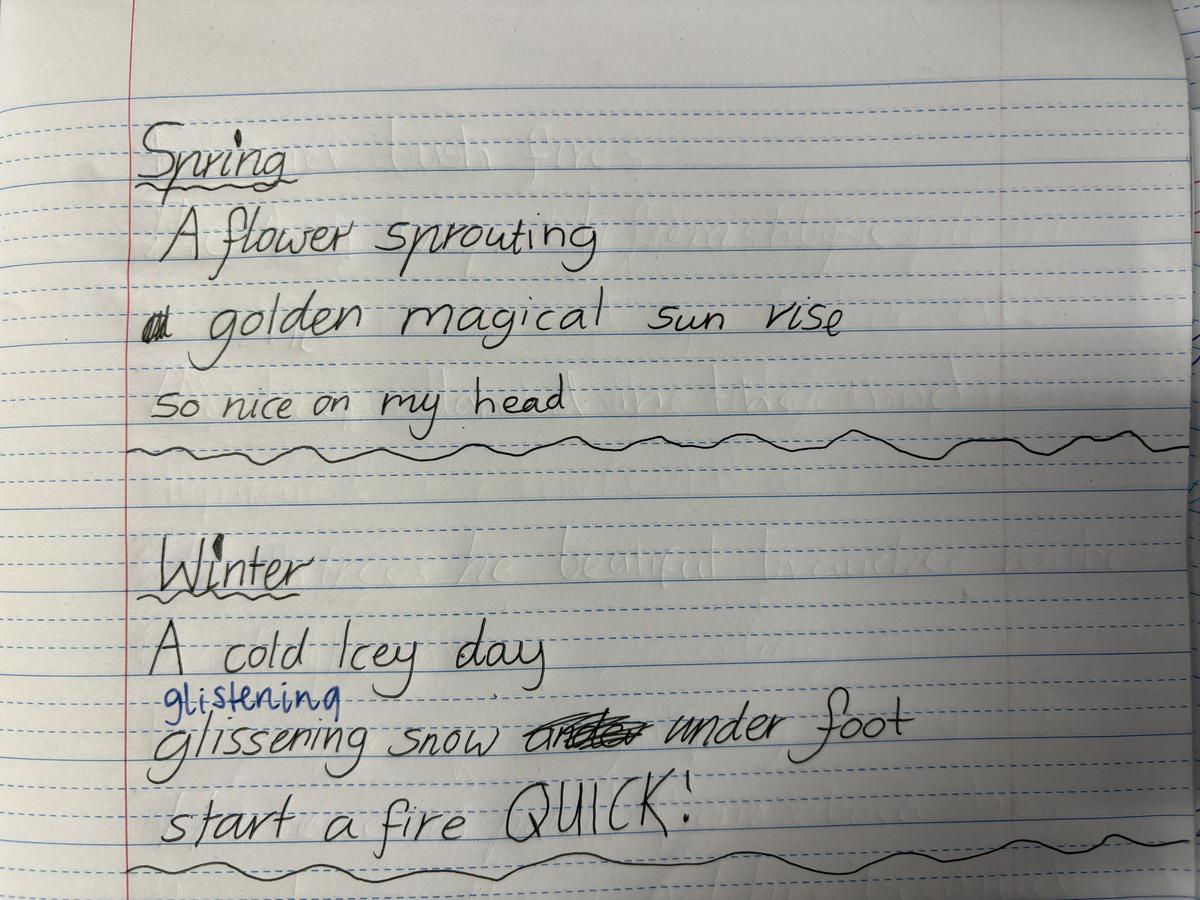 Spring
A flower sprouting
golden magical sun rise
so nice on my head
Winter
A cold Icey day
glistening
glissering snow under foot
start a fire QUICK!